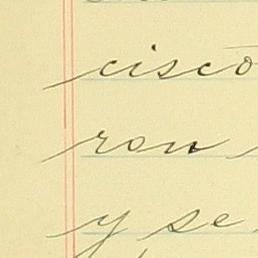 cisco
ron
y se